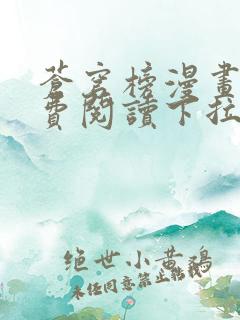 蒼穹榜漫畫
費閱讀下拉
絕世小黃鴉
未经同意禁止转载